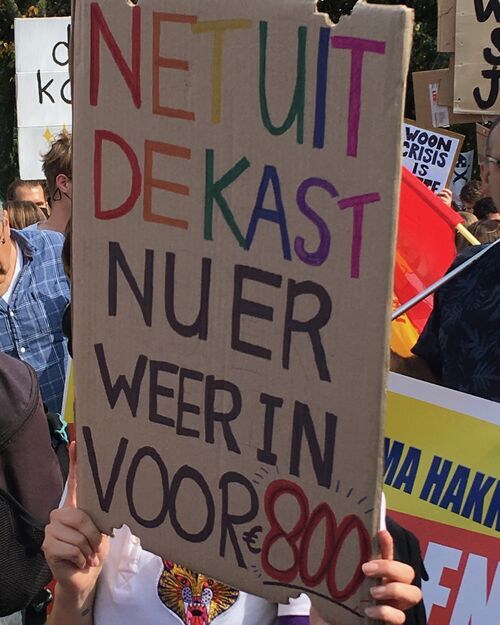 NET UIT
DE KAST
NU ER
WEER IN
VOOR €800
WOON
CRISIS
IS
MA HAKK